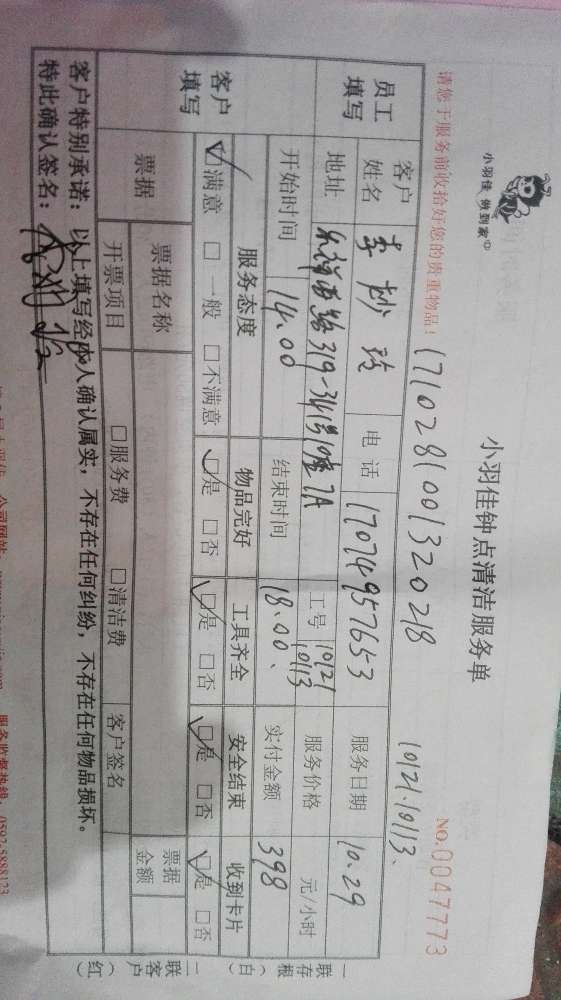 小羽佳 做到家
小羽佳钟点清洁服务单
请您于服务前收拾好您的贵重物品!
NO.0047773
1710281001320218
10121.10113、
员工填写
客户姓名 李 妙 电话 17074957653 服务日期 10.29
地址 319-341号10幢7A 工号 10121 10113 服务价格 元/小时
开始时间 14.00 结束时间 18.00、 实付金额 398
客户填写
服务态度 物品完好 工具齐全 安全结束 收到卡片
☑满意 □一般 □不满意 ☑是 □否 ☑是 □否 ☑是 □否 ☑是 □否
票据 票据名称 票据金额
开票项目 □服务费 □清洁费 客户签名
客户特别承诺:以上填写经本人确认属实,不存在任何纠纷,不存在任何物品损坏。
特此确认签名:
一联存根(白)
二联客户(红)
公司网站
服务监督热线:0592-5888123